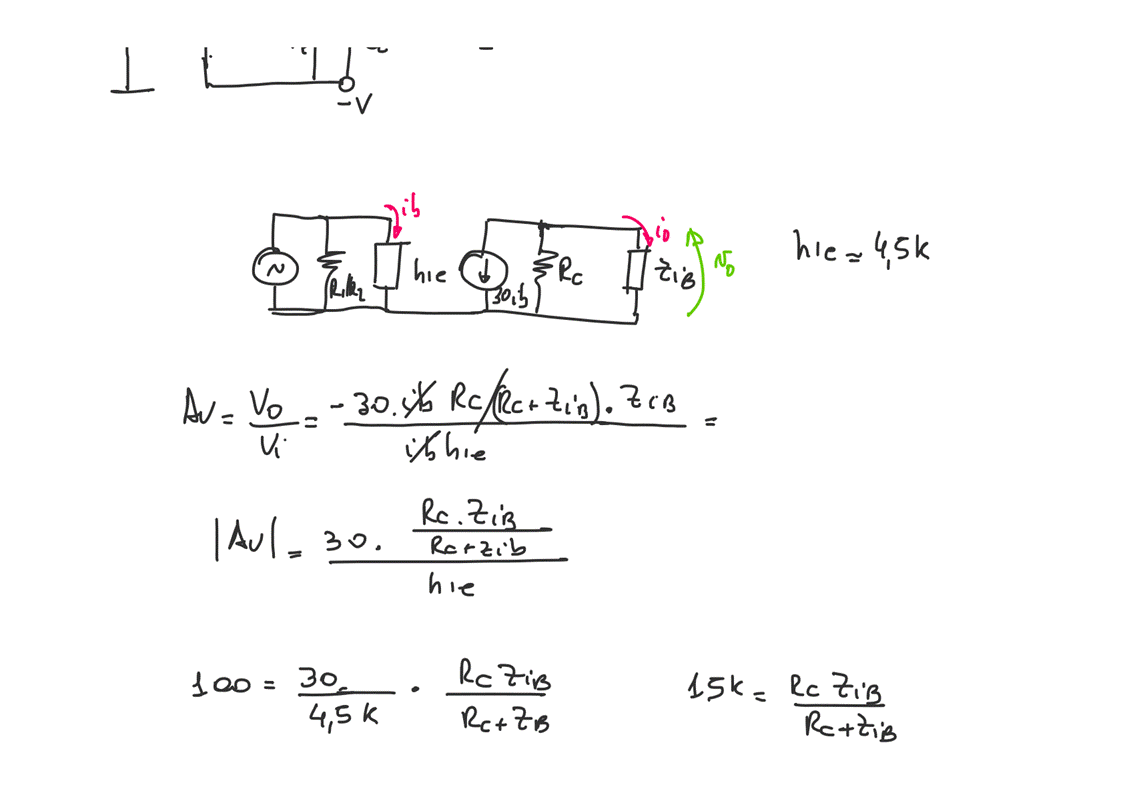 -V
ib
i0
R1//R2
hie
30.ib
Rc
ZiB
v0
hie = 4,5k
Av = V0/Vi = -30.ib Rc/(Rc+ZiB). ZiB / ib hie =
|Av| = 30. Rc.ZiB/Rc+Zib / hie
100 = 30/4,5k . Rc ZiB/Rc+ZB
15k = Rc ZiB/Rc+ZiB